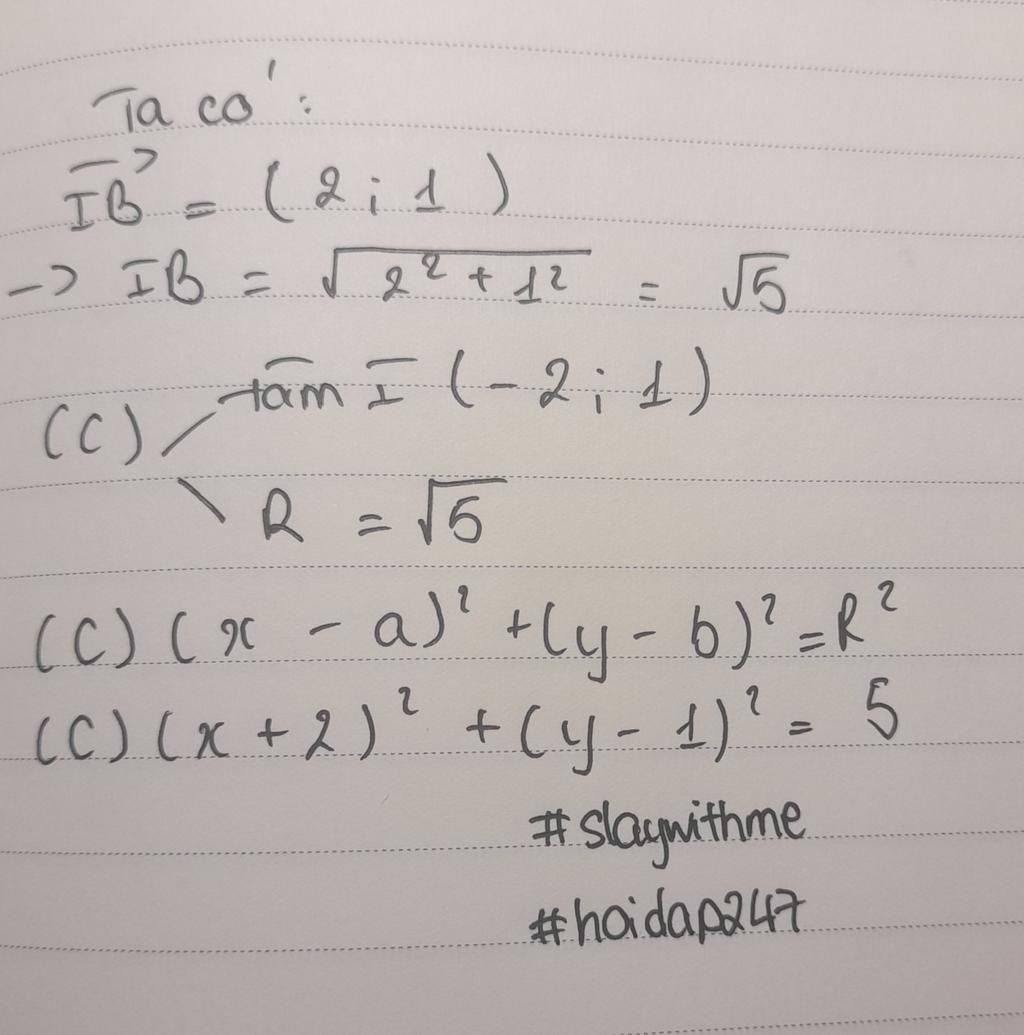 Ta có:
$\overrightarrow{IB}$ = (2; 1)
-> IB = $\sqrt{2^2 + 1^2}$ = $\sqrt{5}$
(C) / tâm I (-2; 1)
\ R = $\sqrt{5}$
(C) (x - a)² + (y - b)² = R²
(C) (x + 2)² + (y - 1)² = 5
#slaywithme
#hoidap247